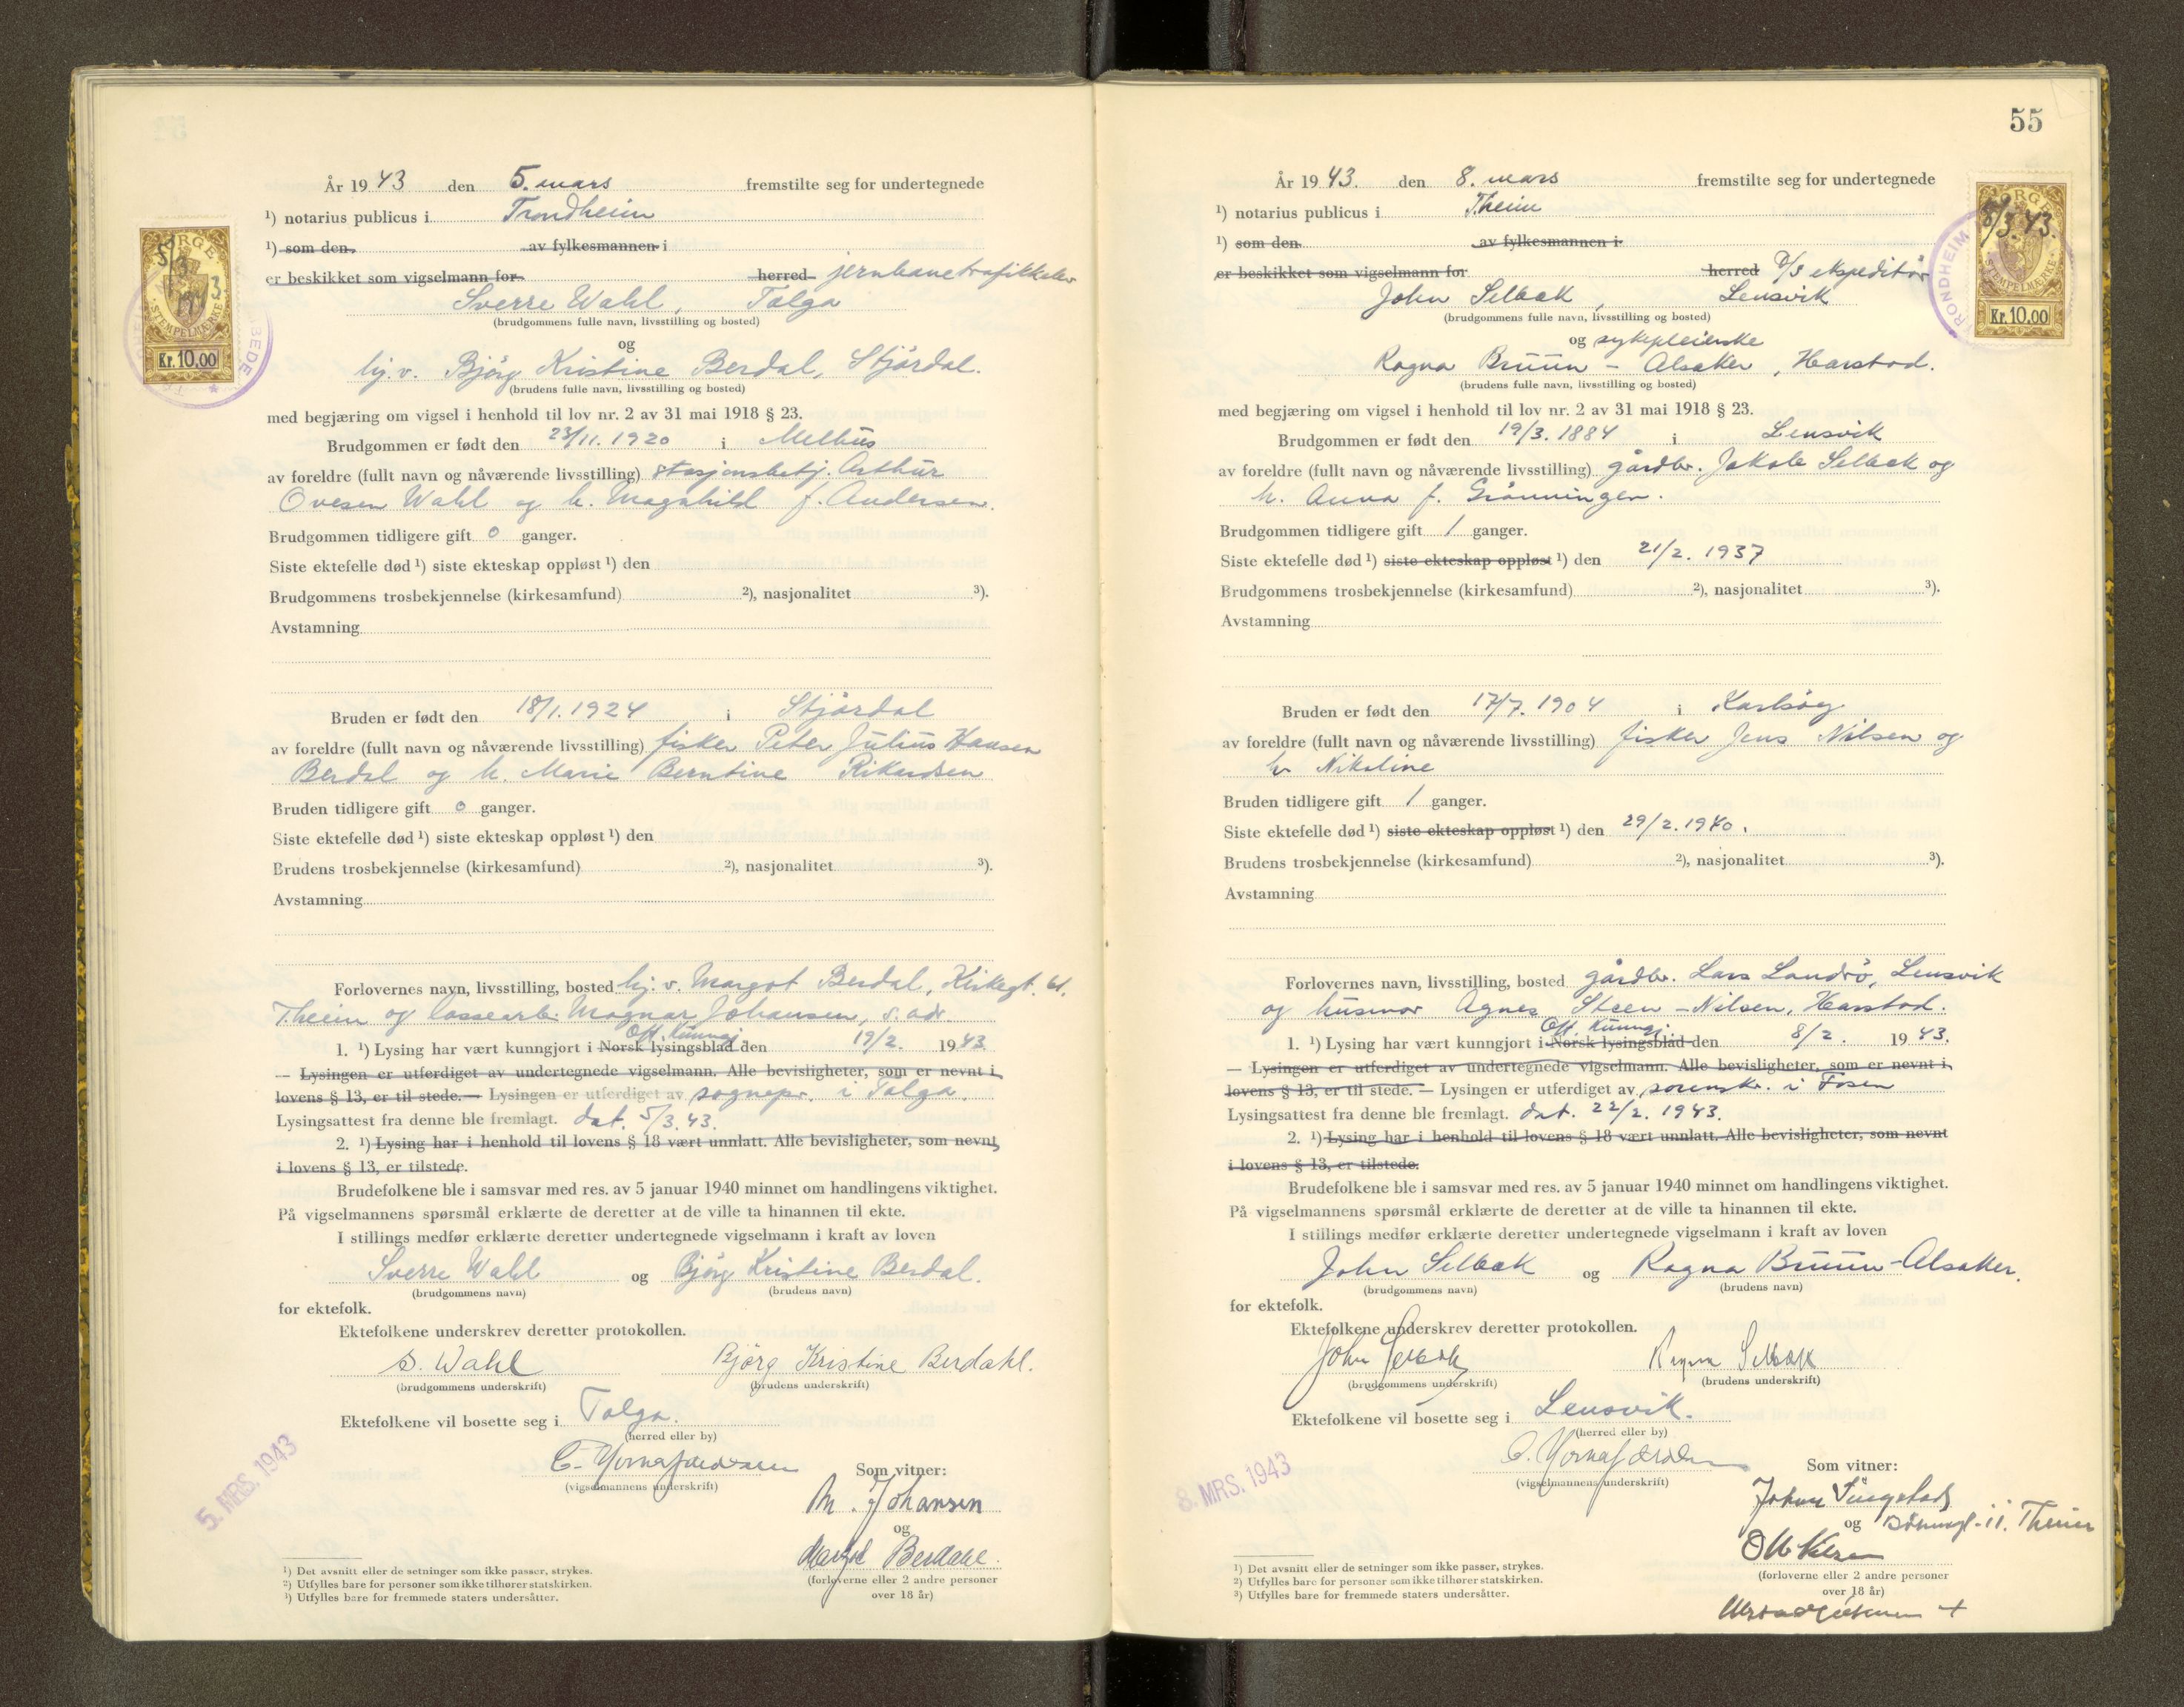 År 1943 den 5. mars fremstilte seg for undertegnede
¹) notarius publicus i Trondheim
¹) som den av fylkesmannen i
er beskikket som vigselmann for herred jernbanetrafikkelev
Sverre Wahl, Tolga
(brudgommens fulle navn, livsstilling og bosted)
og
hj. v. Bjørg Kristine Berdal, Stjördal.
(brudens fulle navn, livsstilling og bosted)
med begjæring om vigsel i henhold til lov nr. 2 av 31 mai 1918 § 23.
Brudgommen er født den 23/11. 1920 i Melhus
av foreldre (fullt navn og nåværende livsstilling) stasjonsbetj. Arthur
Ovesen Wahl og h. Magnhild f. Andersen.
Brudgommen tidligere gift 0 ganger.
Siste ektefelle død ¹) siste ekteskap oppløst ¹) den
Brudgommens trosbekjennelse (kirkesamfund) ²), nasjonalitet ³).
Avstamning
Bruden er født den 18/1. 1924 i Stjördal
av foreldre (fullt navn og nåværende livsstilling) fisker Peter Julius Hansen
Berdal og h. Marie Berntine Rikardsen
Bruden tidligere gift 0 ganger.
Siste ektefelle død ¹) siste ekteskap oppløst ¹) den
Brudens trosbekjennelse (kirkesamfund) ²), nasjonalitet ³).
Avstamning
Forlovernes navn, livsstilling, bosted hj. v. Margot Berdal, Kirkegt. 61.
T.heim og lossearb. Magnar Johansen, s. adr.
Off. kunngj.
1. ¹) Lysing har vært kunngjort i Norsk lysingsblad den 19/2. 1943.
— Lysingen er utferdiget av undertegnede vigselmann. Alle bevisligheter, som er nevnt i
lovens § 13, er til stede. — Lysingen er utferdiget av sognepr. i Tolga.
Lysingsattest fra denne ble fremlagt. dat. 5/3. 43.
2. ¹) Lysing har i henhold til lovens § 18 vært unnlatt. Alle bevisligheter, som nevnt
i lovens § 13, er tilstede.
Brudefolkene ble i samsvar med res. av 5 januar 1940 minnet om handlingens viktighet.
På vigselmannens spørsmål erklærte de deretter at de ville ta hinannen til ekte.
I stillings medfør erklærte deretter undertegnede vigselmann i kraft av loven
Sverre Wahl og Bjørg Kristine Berdal.
(brudgommens navn) (brudens navn)
for ektefolk.
Ektefolkene underskrev deretter protokollen.
S. Wahl Bjørg Kristine Berdahl.
(brudgommens underskrift) (brudens underskrift)
Ektefolkene vil bosette seg i Tolga.
(herred eller by)
Som vitner:
(vigselmannens underskrift)
M. Johansen
og
Margot Berdahl.
(forloverne eller 2 andre personer
over 18 år)
5. MRS. 1943
¹) Det avsnitt eller de setninger som ikke passer, strykes.
²) Utfylles bare for personer som ikke tilhører statskirken.
³) Utfylles bare for fremmede staters undersåtter.
NORGE
STEMPELMERKE
Kr. 10.00
55
År 1943. den 8. mars fremstilte seg for undertegnede
¹) notarius publicus i T.heim
¹) som den av fylkesmannen i
er beskikket som vigselmann for herred D/S ekspeditör
John Selbæk, Lensvik
(brudgommens fulle navn, livsstilling og bosted)
og sykepleierske
Ragna Bruun - Alsaker, Harstad.
(brudens fulle navn, livsstilling og bosted)
med begjæring om vigsel i henhold til lov nr. 2 av 31 mai 1918 § 23.
Brudgommen er født den 19/3. 1884 i Lensvik
av foreldre (fullt navn og nåværende livsstilling) gårdbr. Jakob Selbæk og
h. Anna f. Grönningen.
Brudgommen tidligere gift 1 ganger.
Siste ektefelle død ¹) siste ekteskap oppløst ¹) den 21/2. 1937
Brudgommens trosbekjennelse (kirkesamfund) ²), nasjonalitet ³).
Avstamning
Bruden er født den 17/7. 1904 i Karlsøy
av foreldre (fullt navn og nåværende livsstilling) fisker Jens Nilsen og
h. Nikoline
Bruden tidligere gift 1 ganger.
Siste ektefelle død ¹) siste ekteskap oppløst ¹) den 29/2. 1940.
Brudens trosbekjennelse (kirkesamfund) ²), nasjonalitet ³).
Avstamning
Forlovernes navn, livsstilling, bosted gårdbr. Lars Landrö, Lensvik
og husmor Agnes Steen - Nilsen, Harstad.
Off. kunngj.
1. ¹) Lysing har vært kunngjort i Norsk lysingsblad den 8/2. 1943.
— Lysingen er utferdiget av undertegnede vigselmann. Alle bevisligheter, som er nevnt i
lovens § 13, er til stede. — Lysingen er utferdiget av sorenskr. i Fosen
Lysingsattest fra denne ble fremlagt. dat. 22/2. 1943.
2. ¹) Lysing har i henhold til lovens § 18 vært unnlatt. Alle bevisligheter, som nevnt
i lovens § 13, er tilstede.
Brudefolkene ble i samsvar med res. av 5 januar 1940 minnet om handlingens viktighet.
På vigselmannens spørsmål erklærte de deretter at de ville ta hinannen til ekte.
I stillings medfør erklærte deretter undertegnede vigselmann i kraft av loven
John Selbæk og Ragna Bruun-Alsaker.
(brudgommens navn) (brudens navn)
for ektefolk.
Ektefolkene underskrev deretter protokollen.
John Selbæk Ragna Selbæk
(brudgommens underskrift) (brudens underskrift)
Ektefolkene vil bosette seg i Lensvik.
(herred eller by)
Som vitner:
(vigselmannens underskrift)
og
(forloverne eller 2 andre personer
over 18 år)
8. MRS. 1943
¹) Det avsnitt eller de setninger som ikke passer, strykes.
²) Utfylles bare for personer som ikke tilhører statskirken.
³) Utfylles bare for fremmede staters undersåtter.
NORGE
8/3.43.
STEMPELMERKE
Kr. 10.00
TRONDHEIM